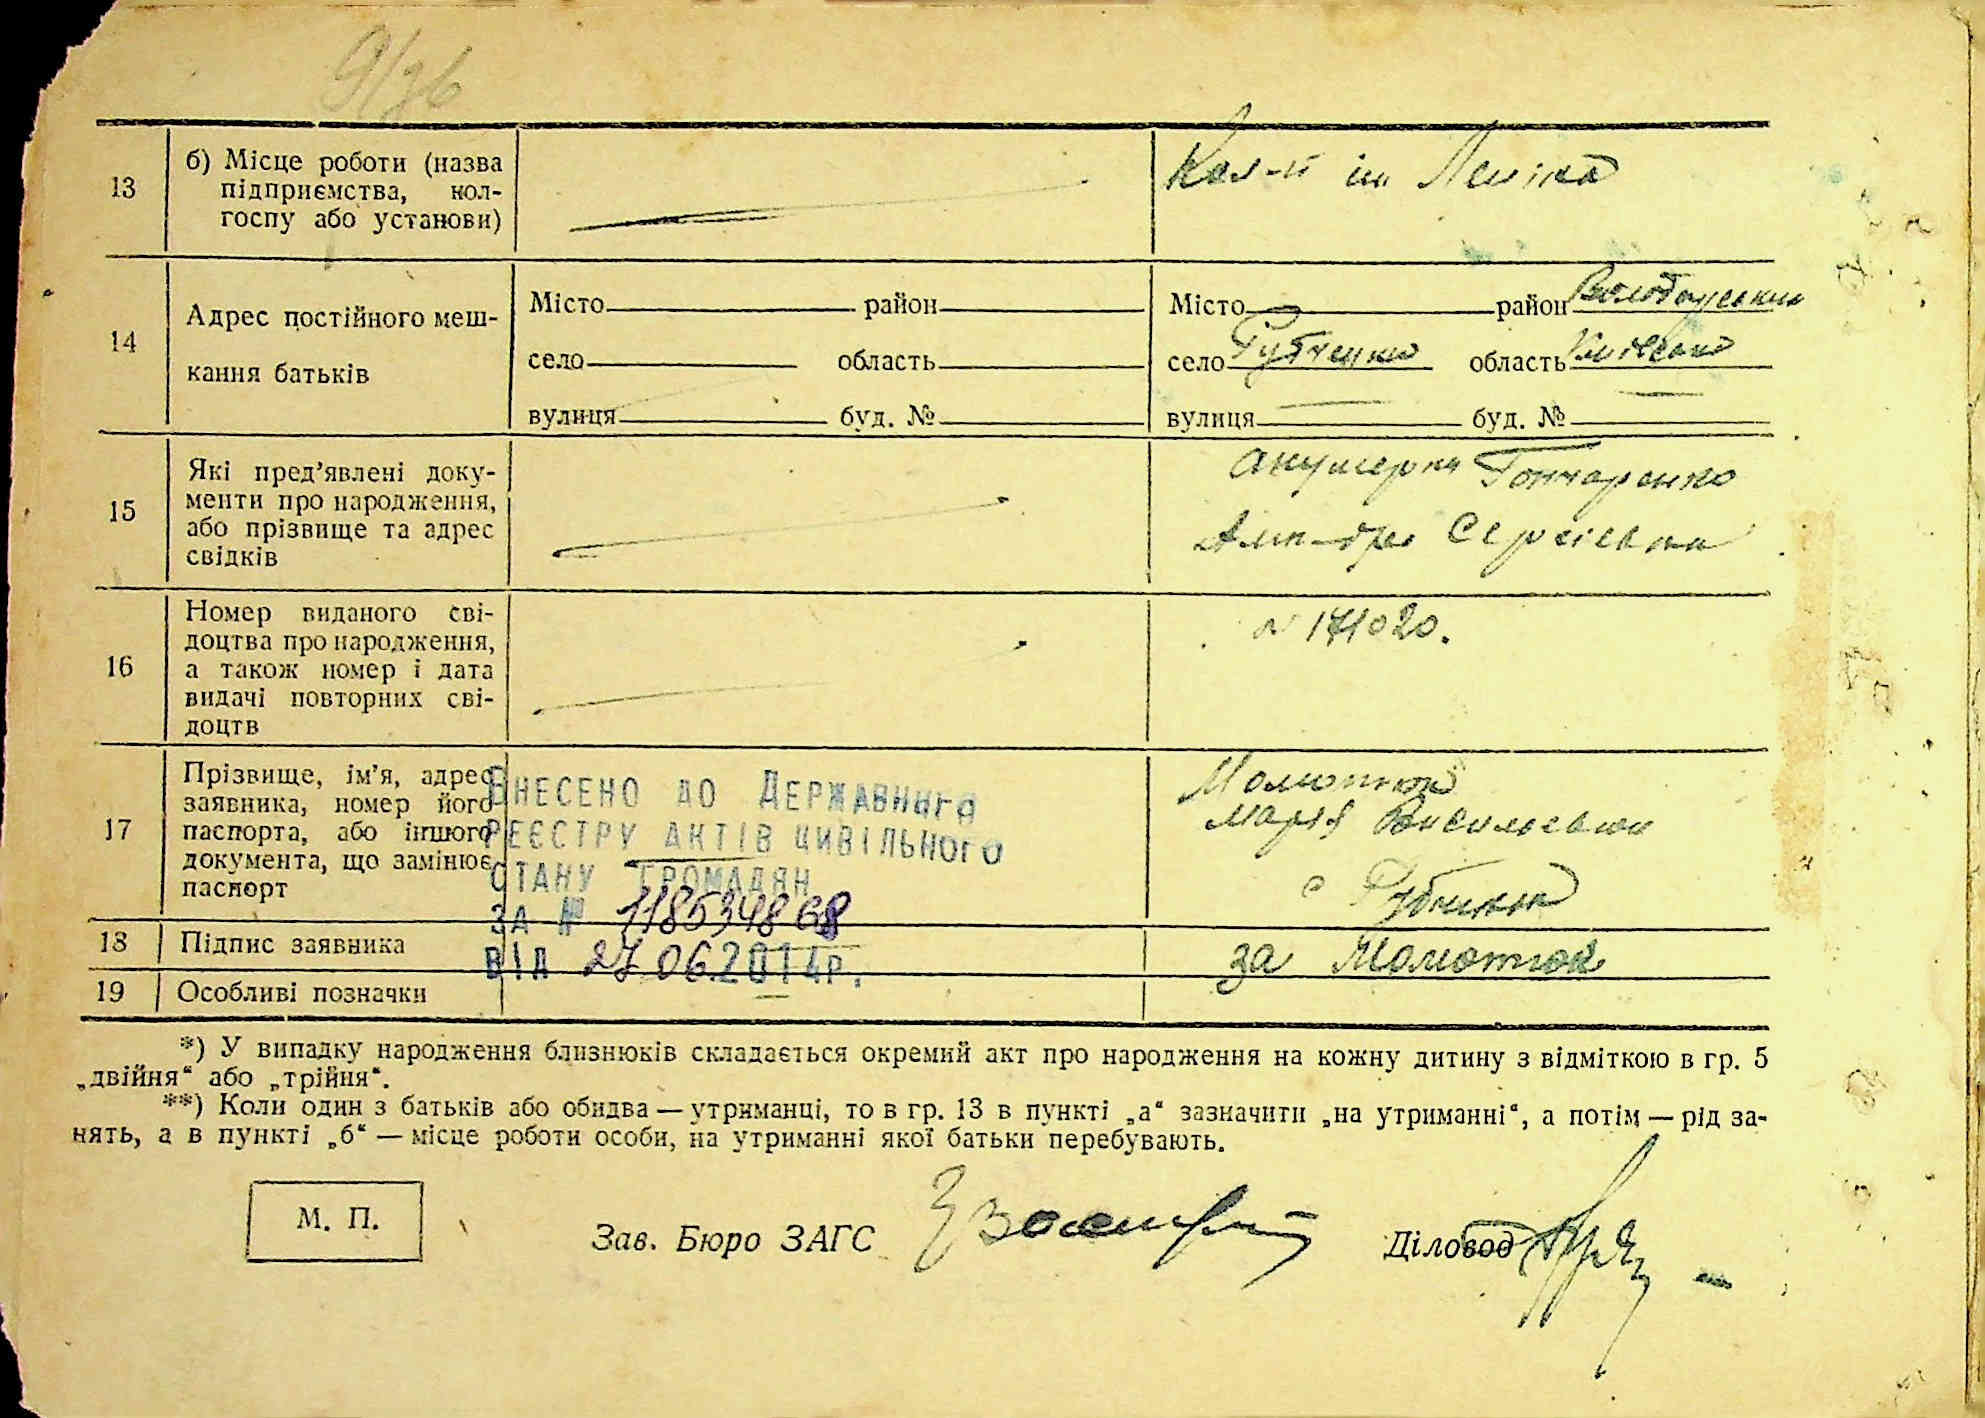 13
б) Місце роботи (назва
підприємства, кол-
госпу або установи)
Кол-п ім Леніна
14
Адрес постійного меш-
кання батьків
Місто район
село область
вулиця буд. №
Місто район Володарський
село Рубченки область Київська
вулиця буд. №
15
Які пред’явлені доку-
менти про народження,
або прізвище та адрес
свідків
акушерка Гончаренко
Сергіївна
16
Номер виданого сві-
доцтва про народження,
а також номер і дата
видачі повторних сві-
доцтв
№ 171020.
17
Прізвище, ім’я, адрес
заявника, номер його
паспорта, або іншого
документа, що замінює
паспорт
Внесено до Державного
реєстру актів цивільного
стану громадян
за № 1185394868
від 27 06.2014р.
Марія Васильевна
с
18
Підпис заявника
за
19
Особливі позначки
*) У випадку народження близнюків складається окремий акт про народження на кожну дитину з відміткою в гр. 5
„двійня“ або „трійня“.
**) Коли один з батьків або обидва — утриманці, то в гр. 13 в пункті „а“ зазначити „на утриманні“, а потім — рід за-
нять, а в пункті „б“ — місце роботи особи, на утриманні якої батьки перебувають.
М. П.
Зав. Бюро ЗАГС
Діловод